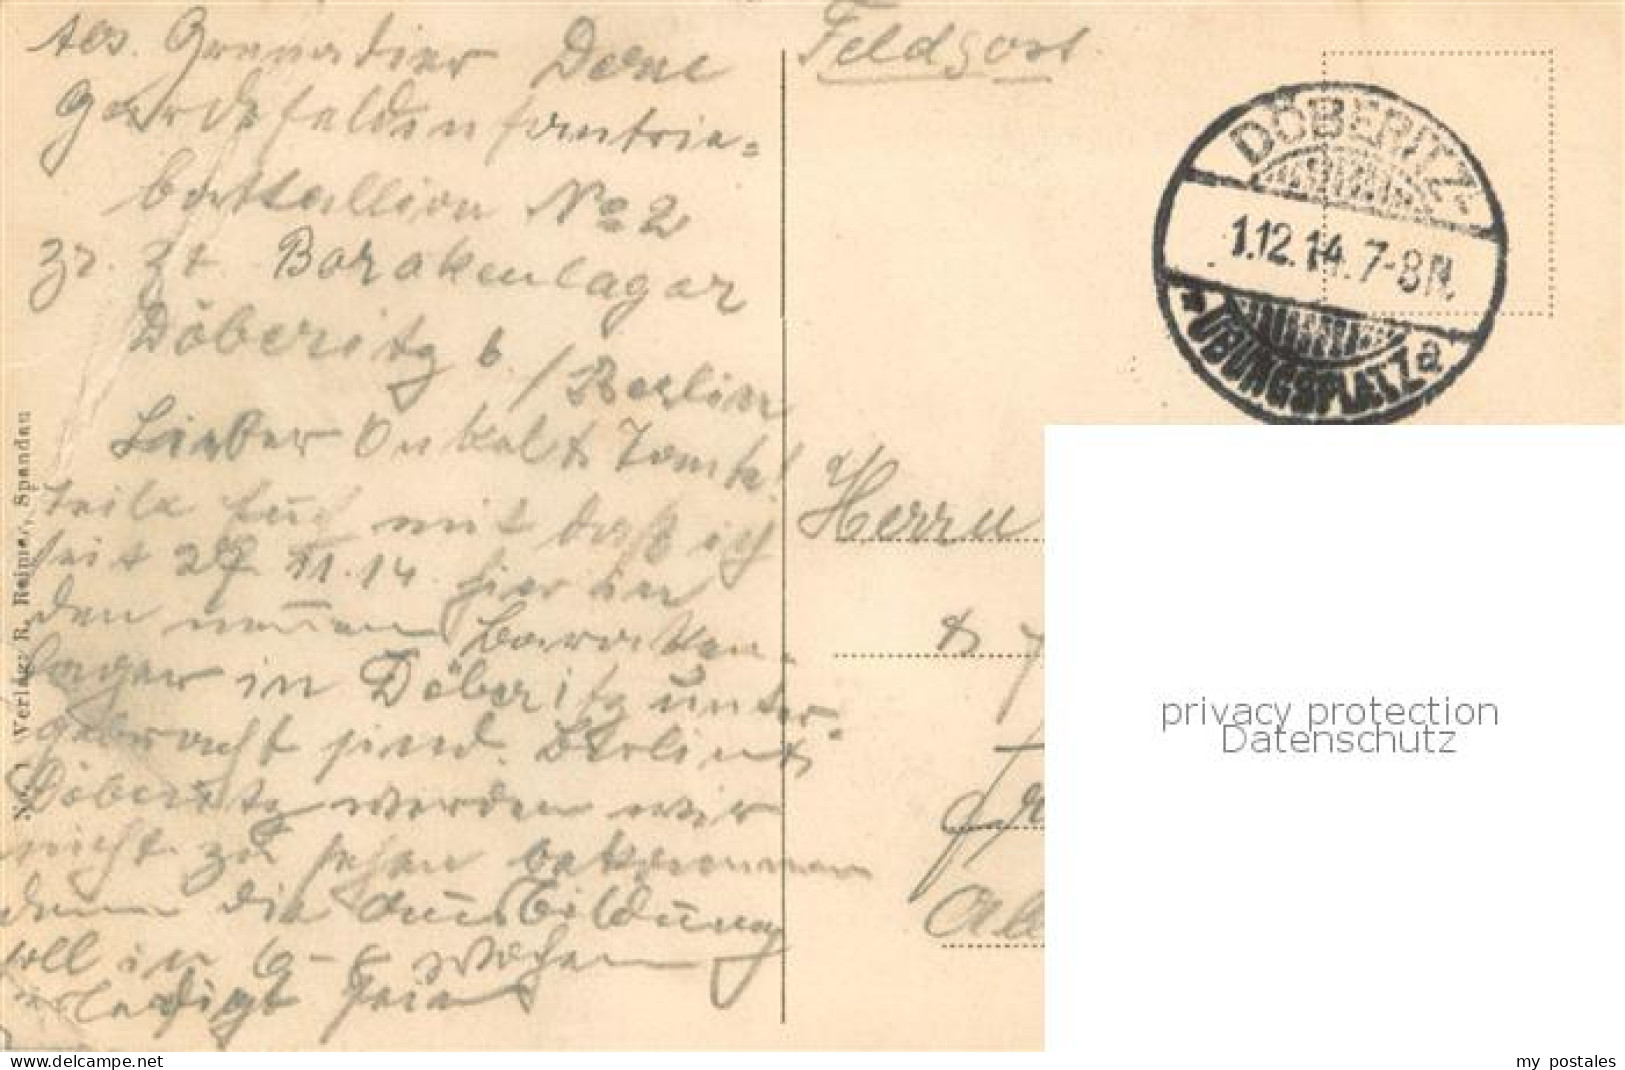 Abs. Grenadier Dene
Gardefeldinfantrie=
battallion No 2
zr. Zt Barakenlager
Döberitz b./Berlin
Lieber Onkel & Tante!
teile Euch mit daß ich
seit 27 11.14 hier in
den neuen Baracken-
lager in Döberitz unter-
gebracht sind.
Döberitz werden wir
nicht zu sehen bekommen
denn die Ausbildung
soll in 6-8 Wochen
erledigt sein
Verlag: R. Reime, Spandau
Feldpost
DÖBERITZ
1.12.14.7-8N.
ÜBUNGSPLATZ a
Herrn
privacy protection
Datenschutz
my postales
www.delcampe.net